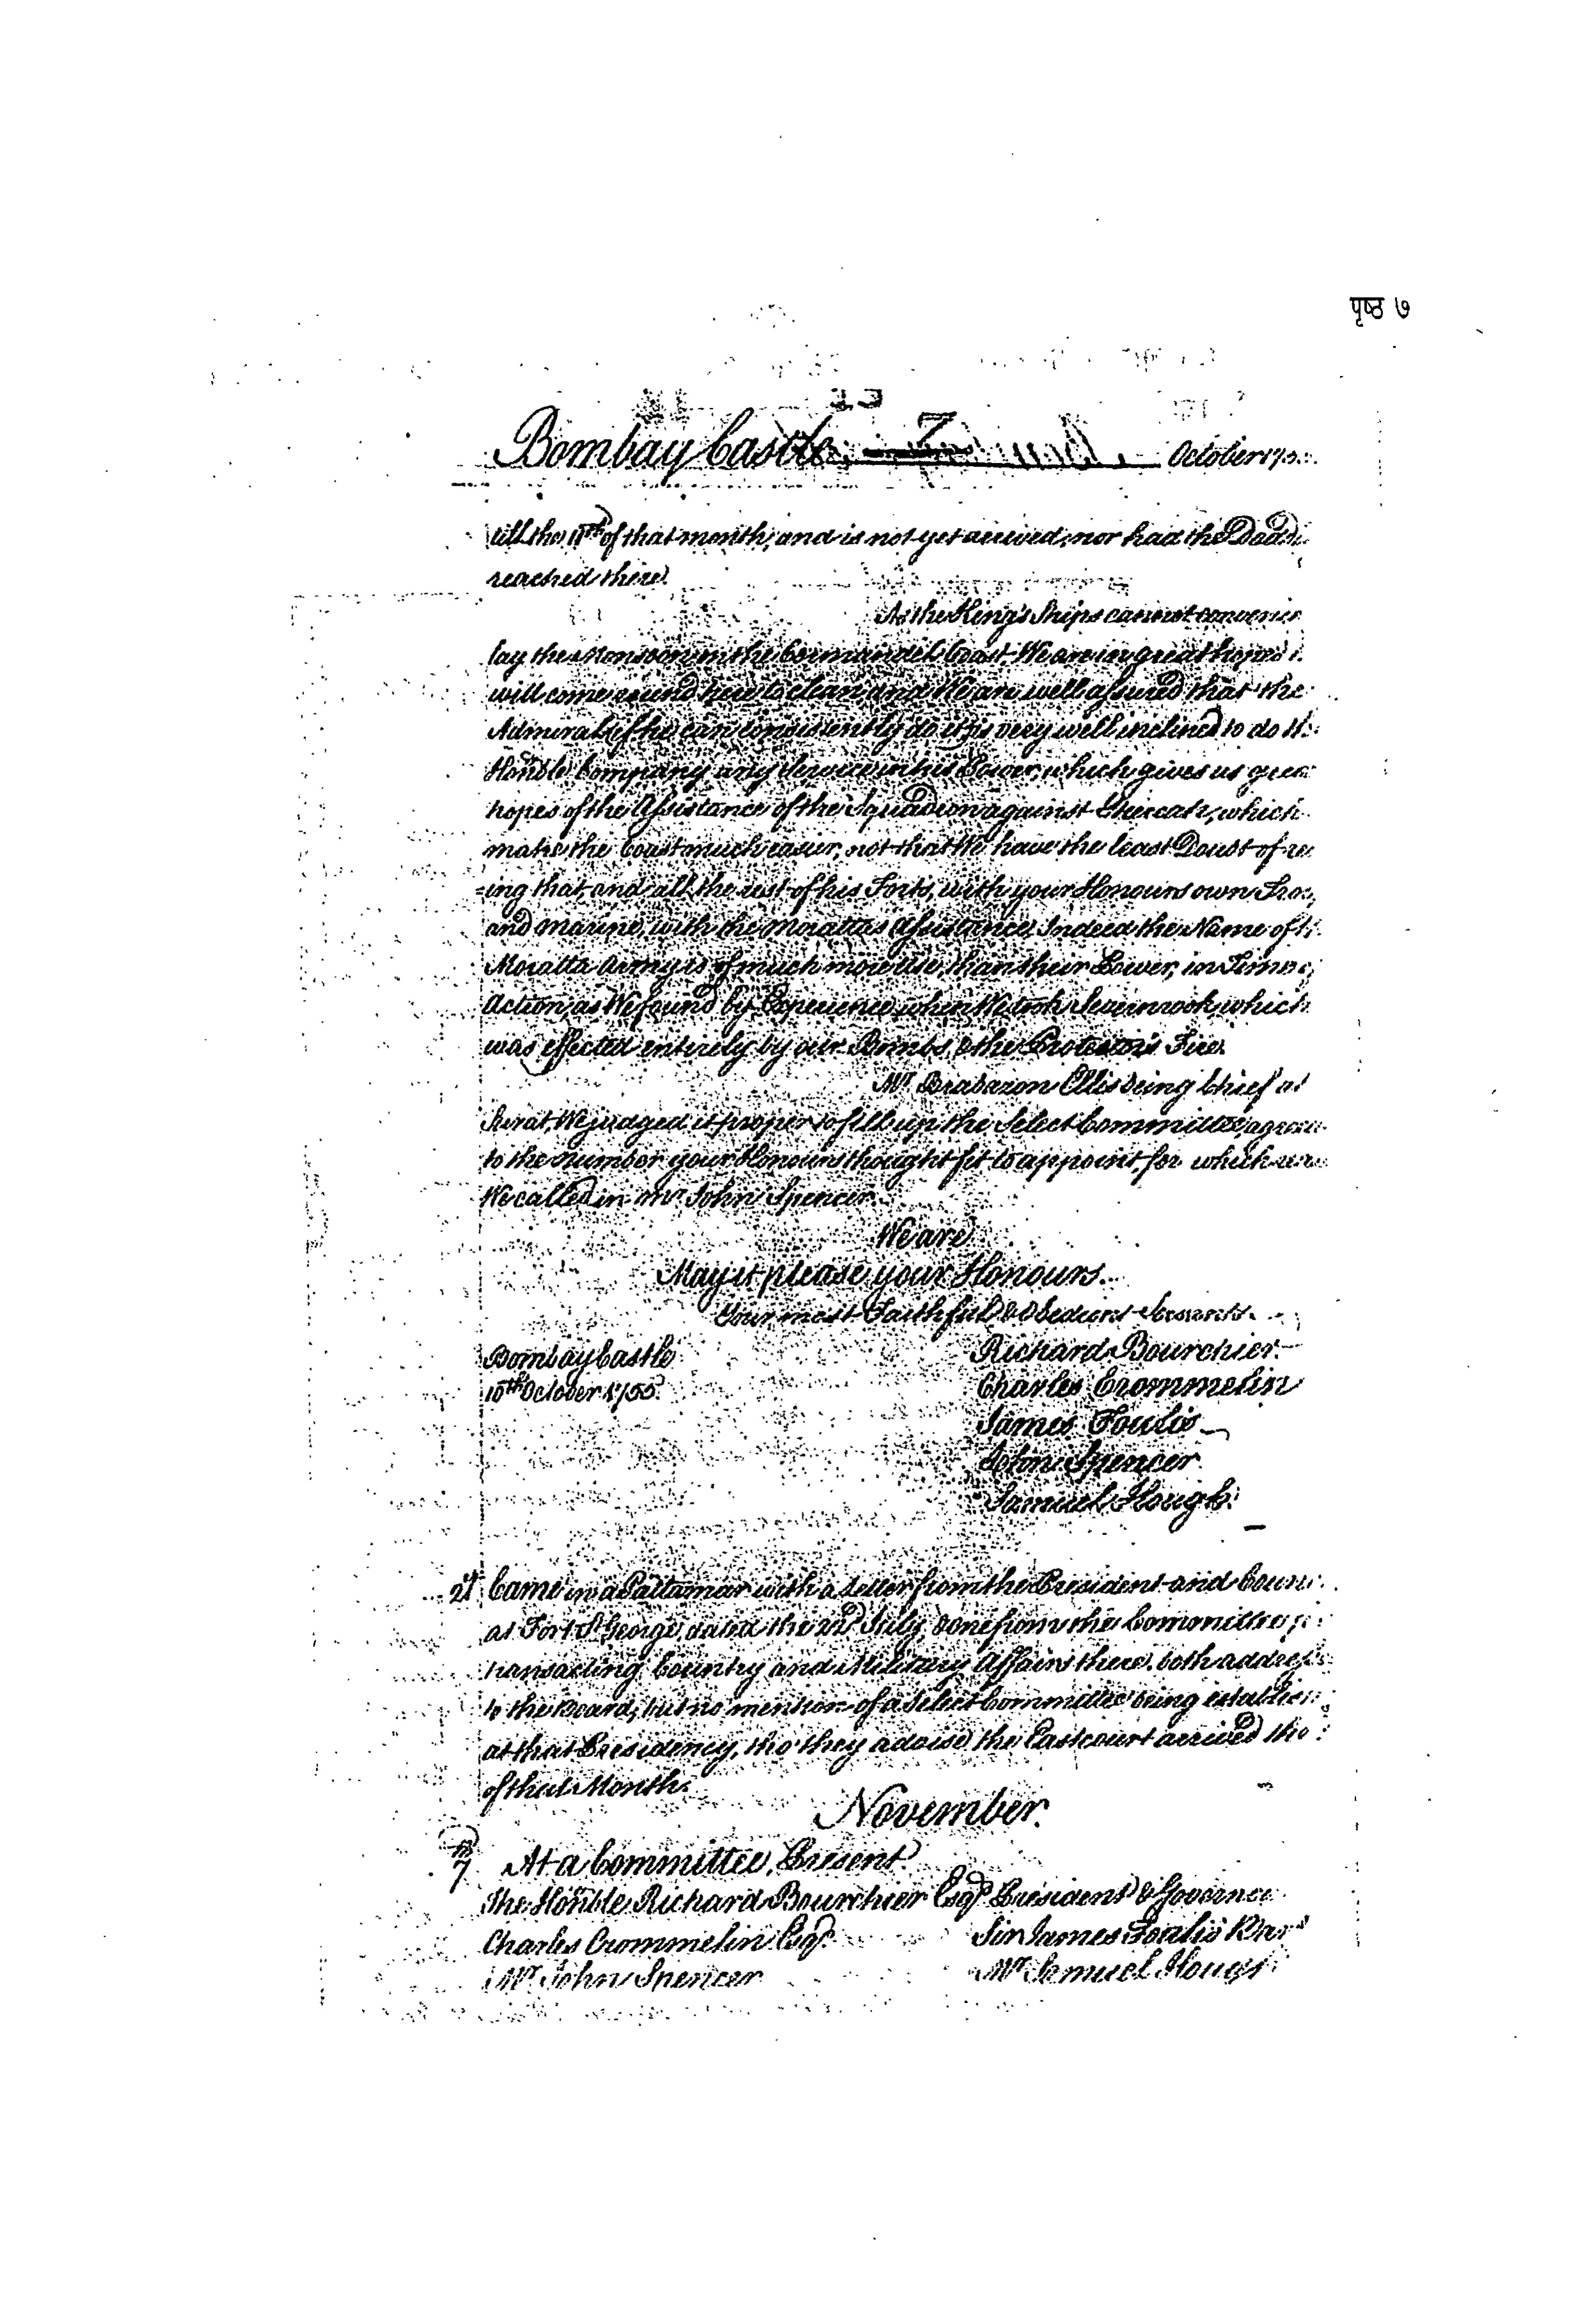 पृष्ठ ७
Bombay Castle October 175
till the 11th of that month, and is not yet arrived, nor had the
reached there.
As the King's Ships cannot
lay the Monsoon on the Cormandel Coast We are in great hopes
will come round here to clean, and We are well assured that the
Admiral if he can consistently do it, is very well inclined to do
Honble Company any Service in his Power, which gives us
hopes of the Assistance of the Squadron against Ghereah, which
make the Coast much easier, not that We have the least Doubt of
=ing that, and all the rest of his Forts, with your Honours own
and marine, with the Morattas Assistance. Indeed the Name of
Moratta Army is of much more Use, than their Power, in Time
Action, as We found by Experience when We took Severndroog, which
was effected entirely by our Bombs, & the Protector's Fire.
Mr. Brabazon Ellis being Chief at
Surat, We judged it proper to fill up the Select Committee,
to the number your Honours thought fit to appoint, for which
We called in Mr. John Spencer.
We are
May it please your Honours.
Your most Faithful & Obedient Servants
Bombay Castle Richard Bourchier
10th October 1755. Charles Crommelin
James Foulis
John Spencer
Samuel Hough
21st Came in a Pattamar with a Letter from the President and
at Fort St George, dated the 22d July, & one from the Committee
transacting Country and Military Affairs there. both
to the Board, but no mention of a Select Committee being
at that Presidency, tho' they advise the Eastcourt arrived the
of that Month.
November.
7th At a Committee, Present
The Honble Richard Bourchier Esqr. President & Governor
Charles Crommelin Esqr. Sir James Foulis
Mr. John Spencer Mr. Samuel Hough